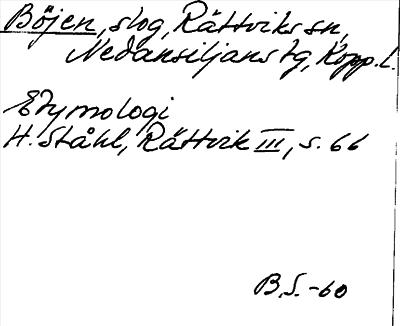 Böjen, slog, Rättviks sn,
Nedansiljans tg, Kopp. l.
Etymologi
H. Ståhl, Rättvik III, s. 66
B.S. -60